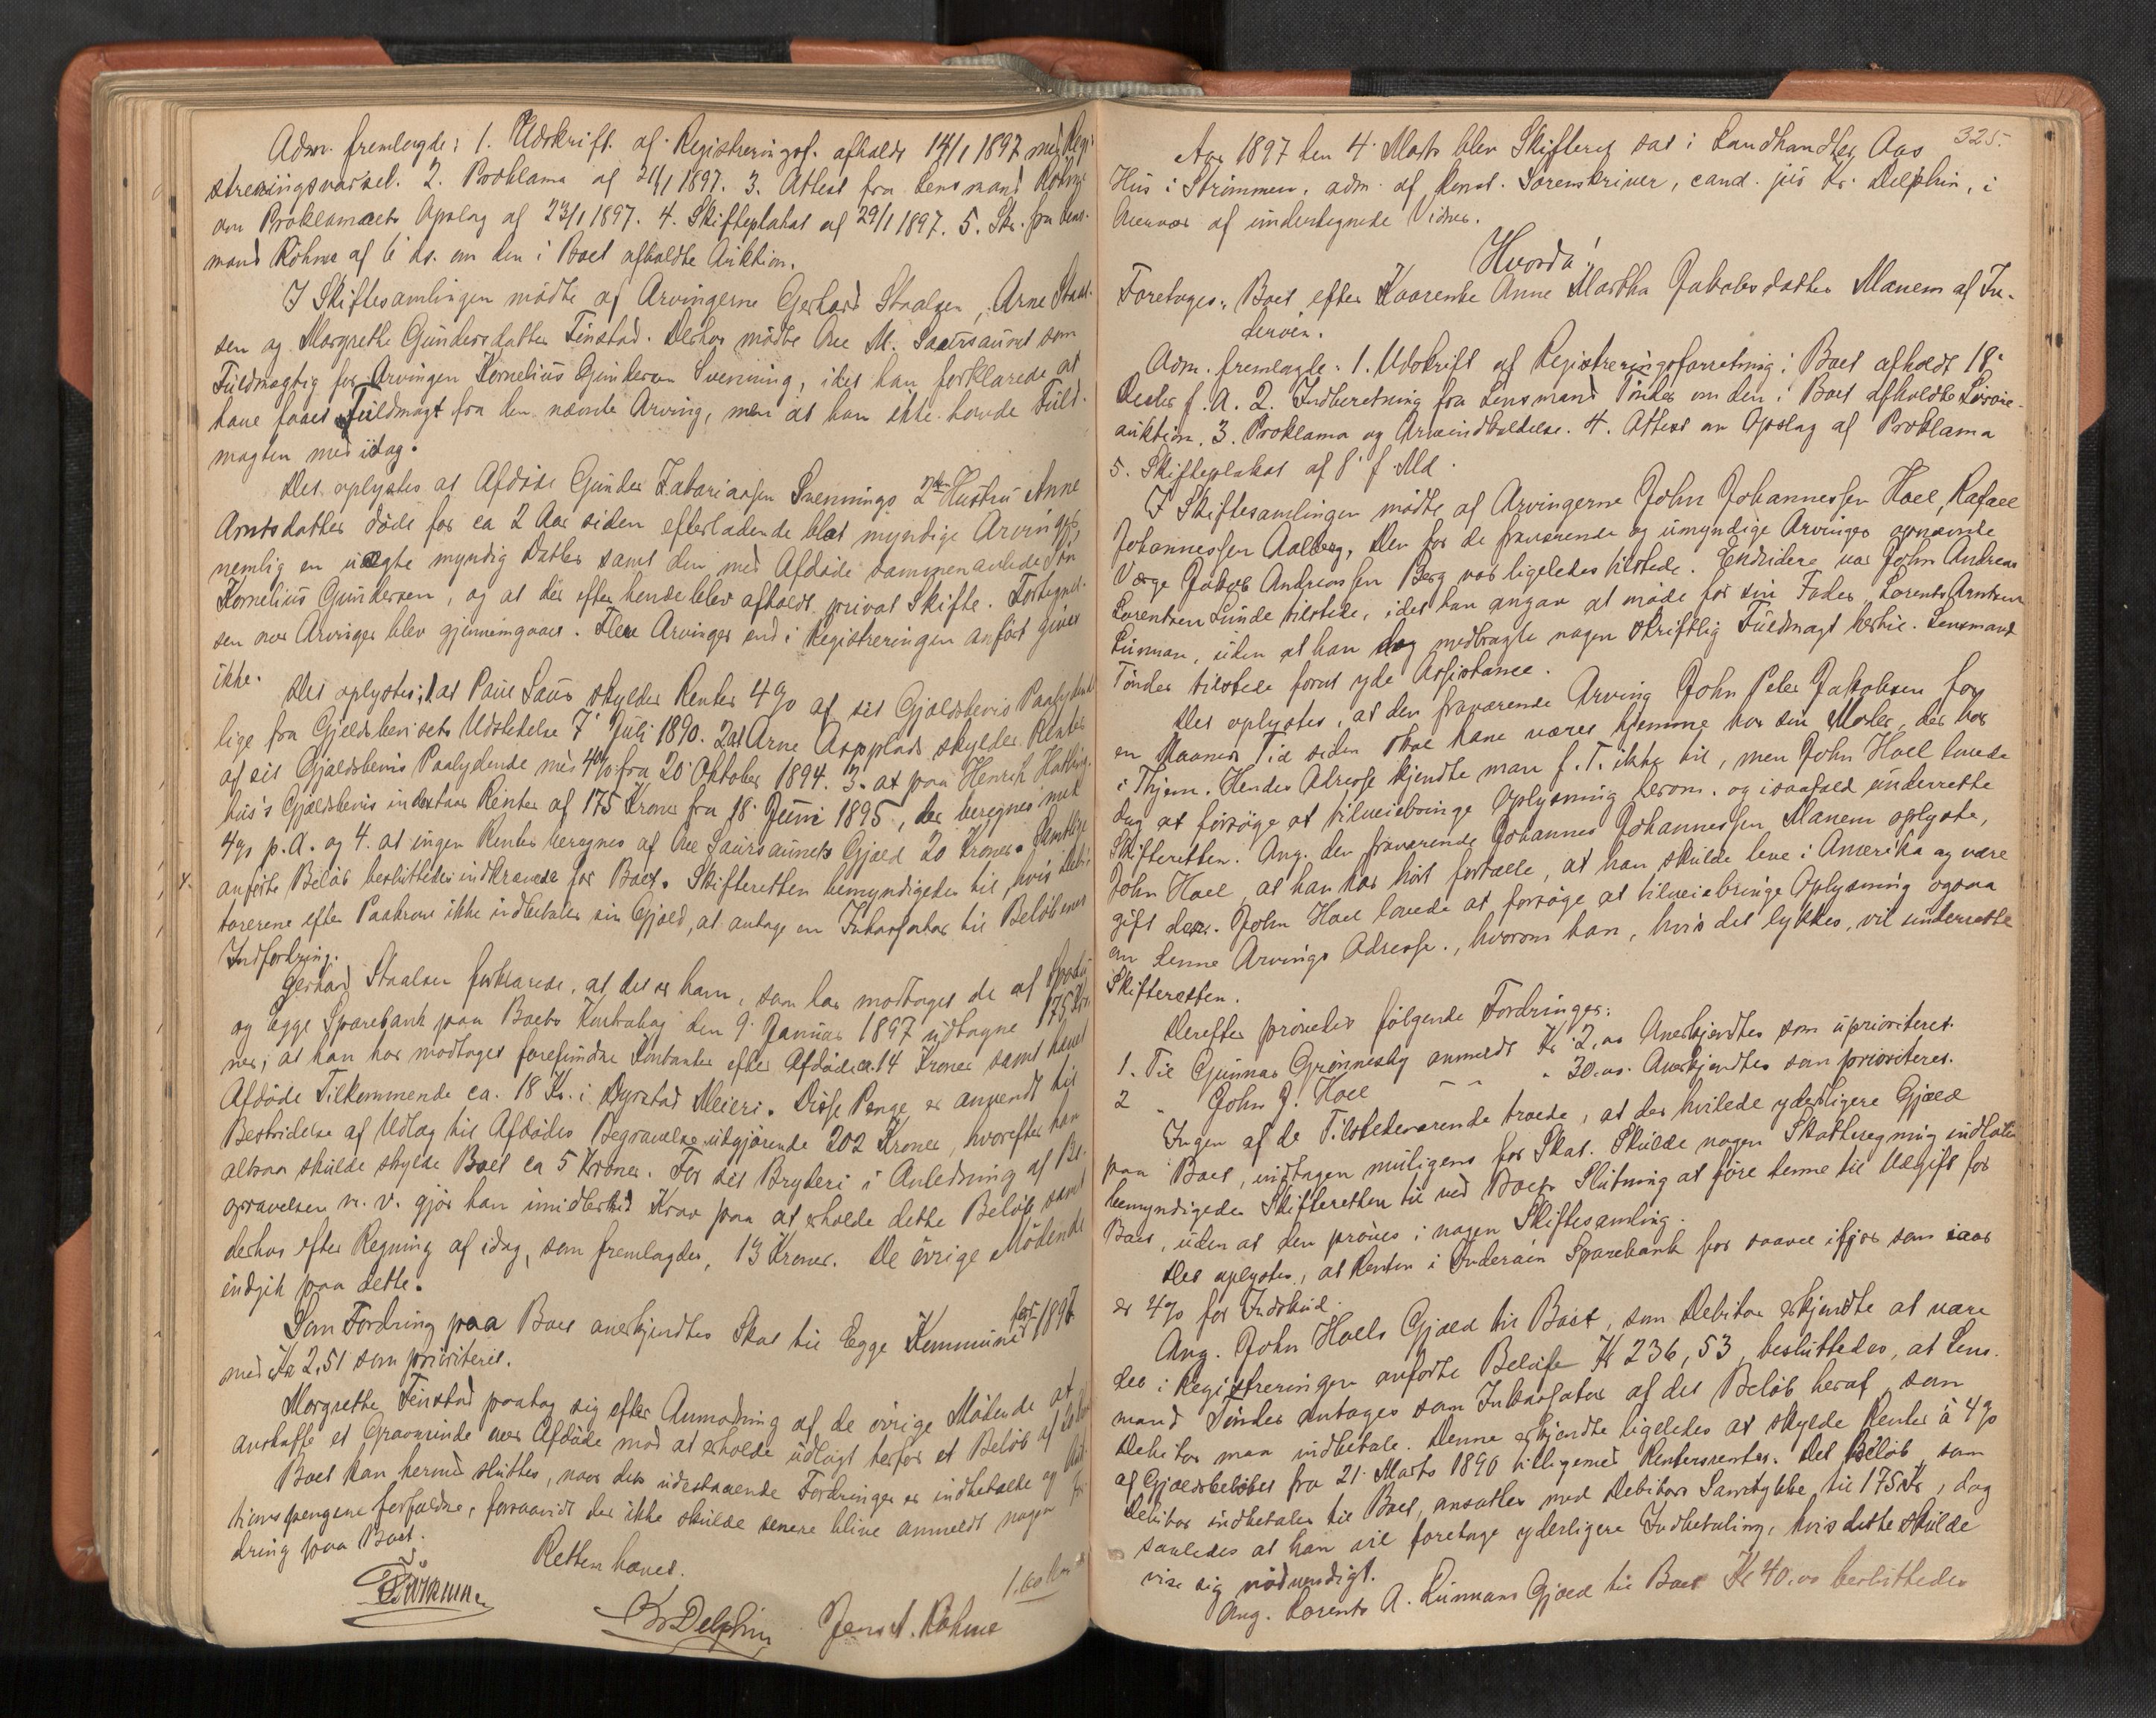 Adm. fremlagde: 1. Udskrift af Registreringsf. afholdt 14/1 1897 med Regi-
streringsvarsel. 2. Proklama af 21/1 1897. 3. Attest fra Lensmand Röhme
om Proklamaets Opslag af 23/1 1897. 4. Skifteplakat af 29/1 1897. 5. Skr. fra Lens-
mand Röhme af 6 ds. om den i Boet afholdte Auktion.
I Skiftesamlingen mödte af Arvingerne Gerhard Staalsen, Arne Staal-
sen og Margrethe Gundersdatter Finstad. Derhos mödte Ole M. Saursaunet som
Fuldmægtig for Arvingen Kornelius Gundersen Svenning, idet han forklarede at
have faaet Fuldmagt fra den nævnte Arving, men at han ikke havde Fuld-
magten med idag.
Det oplystes at Afdöde Gunder Zakariassen Svennings 2den Hustru Anne
Arntsdatter döde for ca 2 Aar siden efterladende blot myndige Arvinger,
nemlig en uægte myndig Datter samt den med Afdöde sammenavlede Sön
Kornelius Gundersen, og at der efter hende blev afholdt privat Skifte. Fortegnel-
sen over Arvinger blev gjennemgaaet. Flere Arvinger end i Registreringen anfört gives
ikke.
Det oplystes: 1. at Paul Saur skylder Renter 4% af sit Gjældsbevis Paalydende
lige fra Gjeldsbevisets Udstedelse 7' Juli 1890. 2. at Arne Aspplads skylder Renter
af sit Gjældsbevis Paalydende med 4% fra 20' Oktober 1894. 3. at paa Henrik
hus's Gjældsbevis indestaar Renter af 175 Kroner fra 18' Juni 1895, der beregnes med
4% p. A. og 4. at ingen Renter beregnes af Ole Saursaunets Gjæld 20 Kroner. Samtlige
anförte Belöb besluttedes indkrævede for Boet. Skifteretten bemyndigedes til, hvis Debi-
torerne efter Paakrav ikke indbetaler sin Gjæld, at antage en Inkassator til Belöbenes
Indfordring.
Gerhard Staalsen forklarede, at det er ham, som har modtaget de af Sparbu
og Egge Sparebank paa Boets Kontrabog den 9' Januar 1897 udtagne 175 Kro-
ner; at han har modtaget forefundne Kontanter efter Afdöde ca. 14 Kroner samt hævet
Afdöde Tilkommende ca. 18 Kr. i Dyrstad Meieri. Disse Penge er anvendt til
Bestridelse af Udlæg til Afdödes Begravelse udgjörende 202 Kroner, hvorefter han
altsaa skulde skylde Boet ca 5 Kroner. For sit Bryderi i Anledning af Be-
gravelsen m. v. gjör han imidlertid Krav paa at erholde dette Belöb samt
derhos efter Regning af idag, som fremlagdes, 13 Kroner. De övrige Mödende
indgik paa dette.
Som Fordring paa Boet anerkjendtes Skat til Egge Kommune for 1897
med Kr 2,51 som prioriteret.
Margrethe Finstad paatog sig efter Anmodning af de övrige Mödende at
anskaffe et Gravminde over Afdöde mod at erholde udlagt herfor et Belöb af
Boet kan hermed sluttes, naar dets udestaaende Fordringer er indbetalte og Auk-
tionspengene forfaldne, forsaavidt der ikke skulde senere blive anmeldt nogen For-
dring paa Boet.
Retten hævet.
Kr Delphin Jens A. Röhme

325.
Aar 1897 den 4' Marts blev Skifteret sat i Landhandler Aas
Hus i Strömmen, adm. af konst. Sorenskriver, cand. jur Kr. Delphin, i
Overvær af undertegnede Vidner.
Hvorda!
Foretoges: Boet efter Kaarenke Anne Martha Jakobsdatter Manem af In-
deröen.
Adm. fremlagde: 1. Udskrift af Registreringsforretning i Boet afholdt 18'
Decbr f. A. 2. Indberetning fra Lensmand Tönder om den i Boet afholdte Lösöre-
auktion. 3. Proklama og Arveindkaldelse. 4. Attest om Opslag af Proklama
5. Skifteplakat af 8' f. Md.
I Skiftesamlingen mödte af Arvingerne John Johannessen Hoel, Rafael
Johannessen Aalberg. Den for de fraværende og umyndige Arvinger opnævnte
Værge Jakob Andreassen Berg var ligeledes tilstede. Endvidere var John Andreas
Lorentsen Lunde tilstede, idet han angav at möde for sin Fader Lorents Arntsen
Lunnan, uden at han dog medbragte nogen skriftlig Fuldmagt hertil. Lensmand
Tönder tilstede forat yde Assistance.
Det oplystes, at den fraværende Arving John Peter Jakobsen for
en Maaneds Tid siden skal have været hjemme hos sin Moder, der bor
i Thjem. Hendes Adresse kjendte man f. T. ikke til, men John Hoel lovede
dog at forsöge at tilveiebringe Oplysning herom og isaafald underrette
Skifteretten. Ang. den fraværende Johannes Johannessen Manem oplyste,
John Hoel, at han har hört fortælle, at han skulde leve i Amerika og være
gift der. John Hoel lovede at forsöge at tilveiebringe Oplysning ogsaa
om denne Arvings Adresse, hvorom han, hvis det lykkes, vil underrette
Skifteretten.
Derefter prövedes fölgende Fordringer:
1. Til Gunnar Grönnesby anmeldt Kr 2.00 Anerkjendtes som uprioriteret.
2 " John J. Hoel " " " 30.00. Anerkjendtes som prioriteret.
Ingen af de Tilstedeværende troede, at der hvilede yderligere Gjæld
paa Boet, undtagen muligens for Skat. Skulde nogen Skatteregning indlöbe
bemyndigedes Skifteretten til ved Boets Slutning at före denne til Udgift for
Boet, uden at den pröves i nogen Skiftesamling.
Det oplystes, at Renten i Inderöens Sparebank for saavel ifjor som iaar
er 4% for Indskud.
Ang. John Hoels Gjæld til Boet, som Debitor erkjendte at være
det i Registreringen anförte Belöb Kr 236,53, besluttedes, at Lens-
mand Tönder antages som Inkassator af det Belöb heraf, som
Debitor maa indbetale. Denne erkjendte ligeledes at skylde Renter à 4%
af Gjældsbelöbet fra 21' Marts 1890 tilligemed Rentersrenter. Det Belöb, som
Debitor indbetaler til Boet, ansattes med Debitors Samtykke til 175 Kr, dog
saaledes at han vil foretage yderligere Indbetaling, hvis dette skulde
vise sig nödvendigt.
Ang. Lorents A. Lunnans Gjæld til Boet Kr 40.00 besluttedes